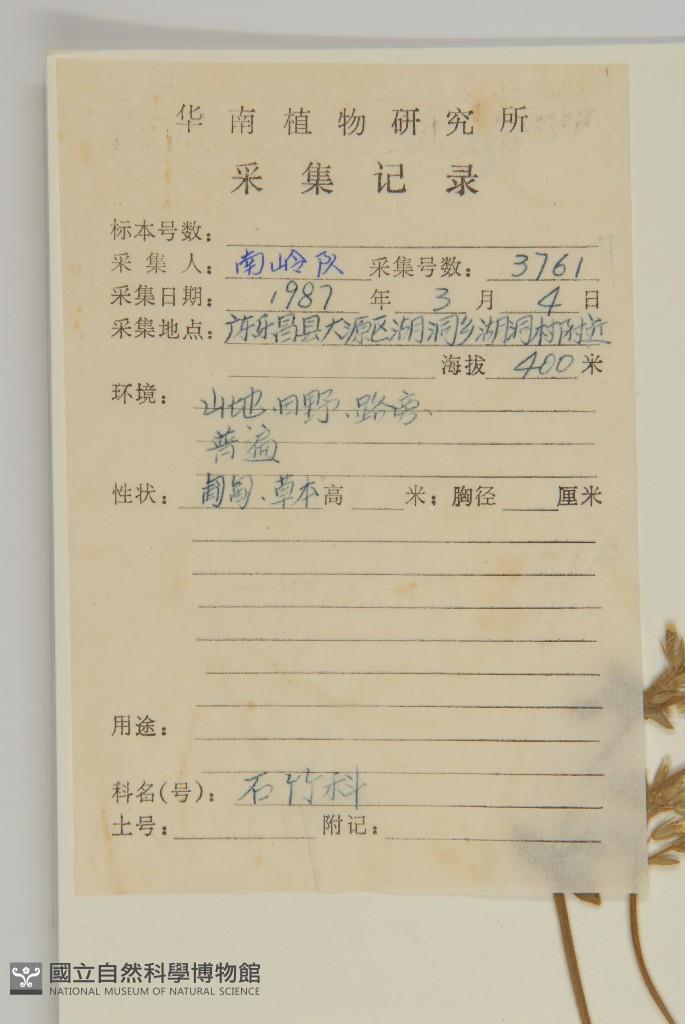 华南植物研究所
采集记录
标本号数：
采集人：南岭队 采集号数：3761
采集日期：1987年3月4日
采集地点：广东乐昌县大源区湖洞乡湖洞村附近
海拔400米
环境：山地、田野、路旁、
普遍
性状：匍匐、草本高 米；胸径 厘米
用途：
科名(号)：石竹科
土号： 附记：
國立自然科學博物館
NATIONAL MUSEUM OF NATURAL SCIENCE